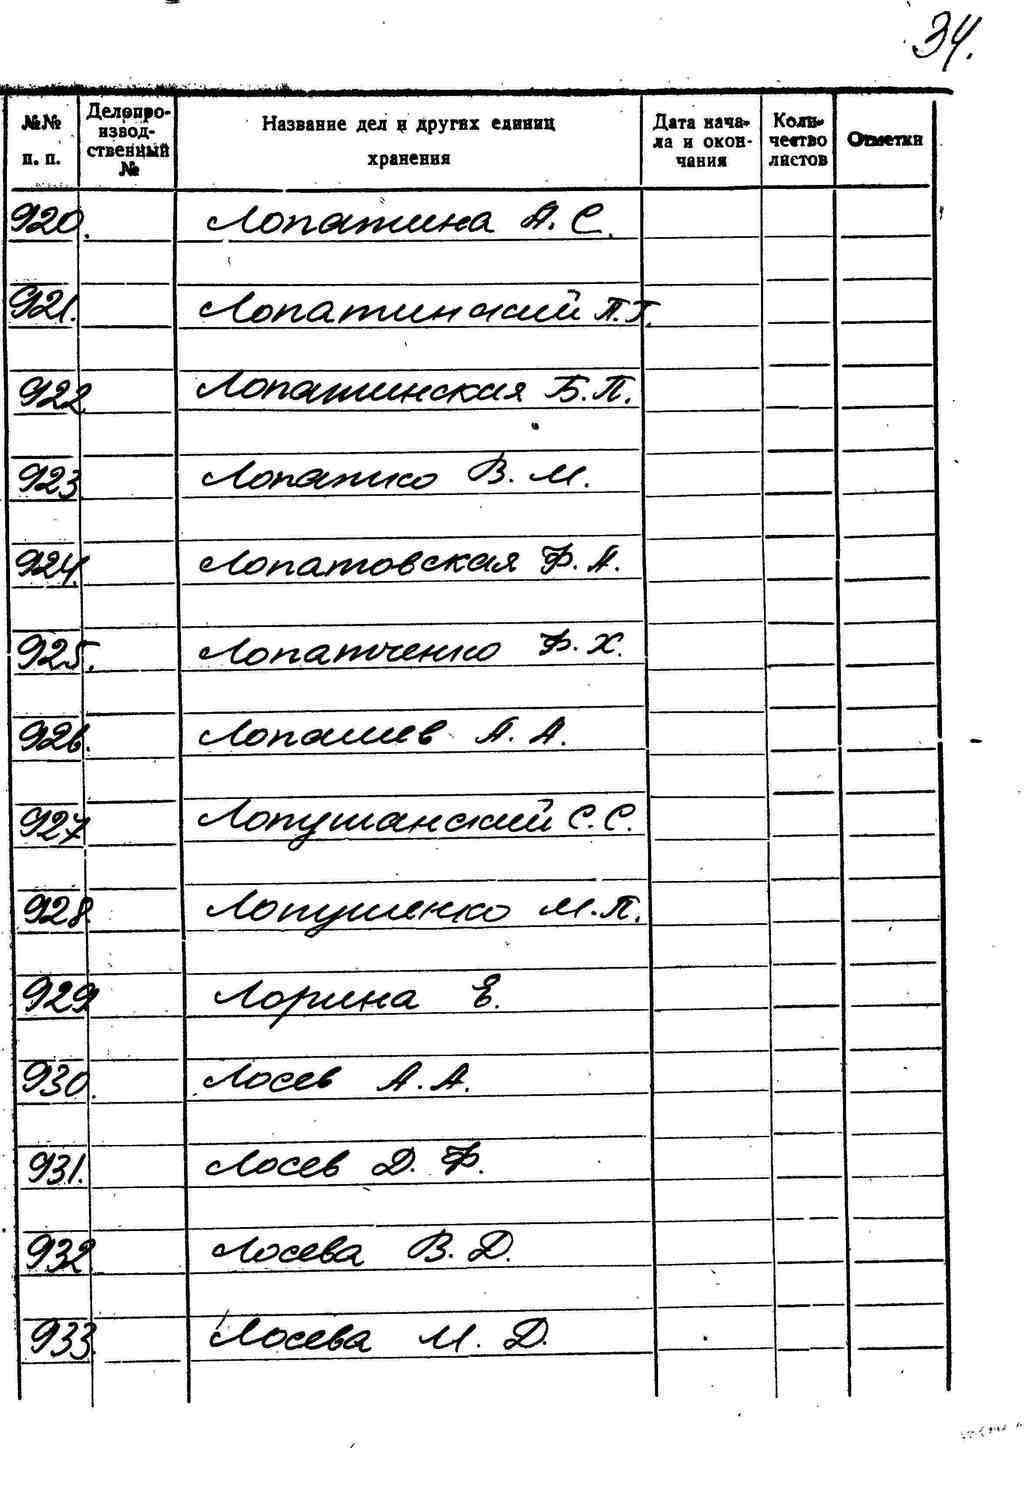 34.
№№ п. п. Делопроизводственный № Название дел и других единиц хранения Дата начала и окончания Количество листов Отметки
920. Лопатина А. С.
921. Лопатинский П.Г.
922 Лопатинская Б.П.
923 Лопатко В. М.
924. Лопатовская Ф. А.
925. Лопатченко Ф. Х.
926. Лопашев А. А.
927 Лопушанский С. С.
928. Лопушенко М. П.
929 Лорина Е.
930. Лосев А. А.
931. Лосев Д. Ф.
932 Лосева В. Д.
933. Лосева М. Д.